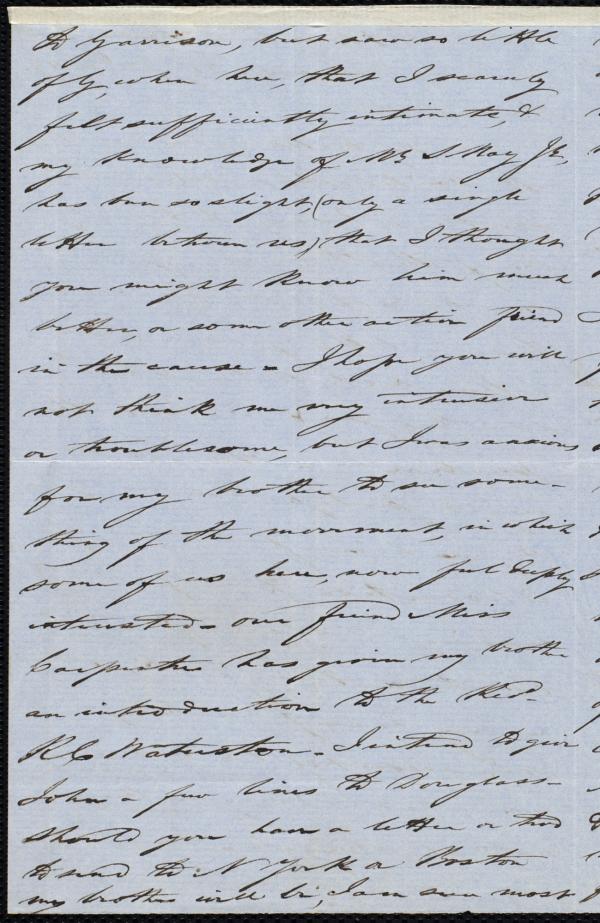 to Garrison, but saw so little
of G, when here, that I scarcely
felt sufficiently intimate, &
my knowledge of Mr S May Jr,
has been so slight, (only a single
letter between us) that I thought
you might know him much
better, or some other active friend
in the cause - I hope you will
not think me very intrusive
or troublesome, but I was anxious
for my brother to see some-
thing of the movement, in which
some of us here, now feel deeply
interested - our friend Miss
Carpenter has given my brother
an introduction to the Revd
R C Waterston - I intend to give
John a few lines to Douglass -
should you have a letter or two
to send to N York or Boston
my brother will be, I am sure most